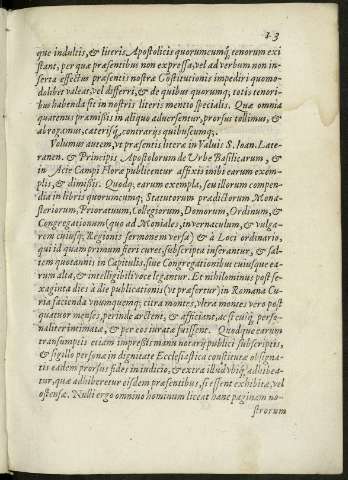 1 3
que indultis, & literis Apostolicis quorumcumq; tenorum exi
stant, per quæ præsentibus non expressa, vel ad verbum non in-
serta effectus præsentis nostræ Costitutionis impediri quomo-
dolibet valeat, vel differri, & de quibus quorumq; totis tenori-
bus habenda sit in nostris literis mentio specialis. Quæ omnia
quatenus præmissis in aliquo adversentur, prorsus tollimus, &
abrogamus, caterisq; contrarys quibuscumq;.
Volumus autem, vt præsentis litera in Valuis S. Ioan. Late-
ranen. & Principis Apostolorum de Vrbe Basilicarum, &
in Acie Campi Floræ publicentur affixis inibi earum exem-
plis, & dimissis. Quodq; earum exempla, seu illorum compen-
dia in libris quorumcumq; Statutorum prædictorum Mona-
steriorum, Prioratuum, Collegiorum, Domorum, Ordinum, &
Congregationum (quo ad Moniales, in vernaculum, & vulga-
rem cuiusq; Regionis sermonem versa) & à Loci ordinario,
qui id quam primum fieri curet, subscripta inserantur, & sal-
tem quotannis in Capitulis, siue Congregationibus cuiusque ea-
rum alta, & intelligibili voce legantur. Et nihilominus post se-
xaginta dies à die publicationis (vt præfertur) in Romana Cu-
ria facienda vnumquemq; citra montes, vltra montes vero post
quatuor menses, perinde arctent, & afficiant, ac si cuiq; perso-
naliter intimata, & per eos iurata fuissent. Quodque earum
transumptis etiam impressis manu notarÿ publici subscriptis,
& sigillo persona in dignitate Ecclesiastica constitutæ obsigna-
tis eadem prorsus fides in iudicio, & extra illud vbiq; adhibea-
tur, quæ adhiberetur eisdem præsentibus, si essent exhibitæ, vel
ostensæ. Nulli ergo omnino hominum liceat hanc paginam no-
strorum